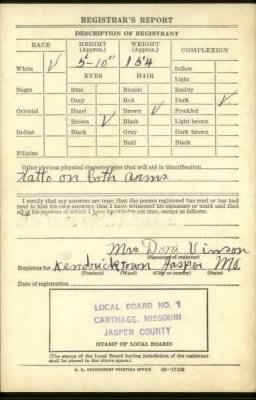 REGISTRAR'S REPORT
DESCRIPTION OF REGISTRANT
RACE HEIGHT (Approx.) WEIGHT (Approx.) COMPLEXION
White ✓ 5-10" 154 Sallow
EYES HAIR Light
Negro Blue Blonde Ruddy
Gray Red Dark ✓
Oriental Hazel Brown ✓ Freckled
Brown ✓ Black Light brown
Indian Black Gray Dark brown
Bald Black
Filipino
Other obvious physical characteristics that will aid in identification
Tatto on both arms
I certify that my answers are true; that the person registered has read or has had
read to him his own answers; that I have witnessed his signature or mark and that
all of his answers of which I have knowledge are true, except as follows:
Mrs Dora Vinson
(Signature of registrar)
Registrar for Kendricktown Jasper Mo.
(Precinct) (Ward) (City or county) (State)
Date of registration
LOCAL BOARD NO. 1
CARTHAGE, MISSOURI
JASPER COUNTY
(STAMP OF LOCAL BOARD)
(The stamp of the Local Board having jurisdiction of the registrant
shall be placed in the above space.)
U. S. GOVERNMENT PRINTING OFFICE